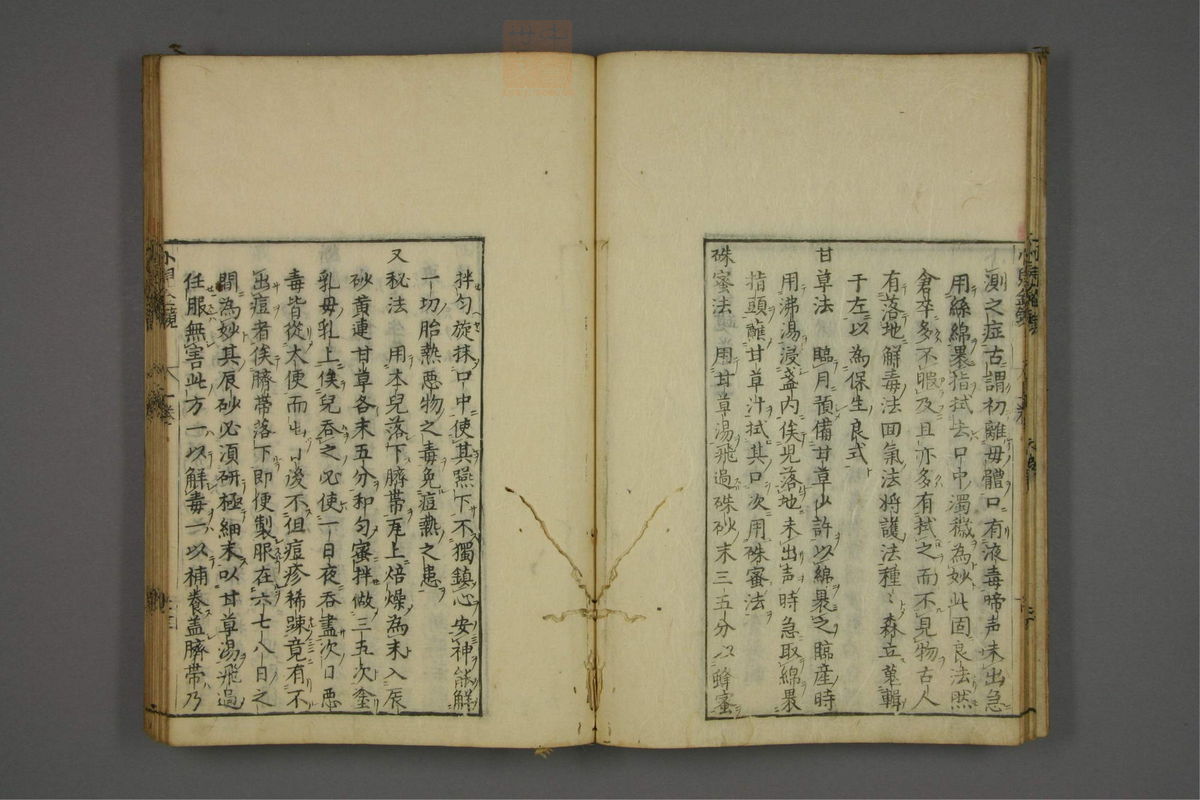 測之症古謂初離母體口有液毒啼声未出急
用絲綿裹指拭去口中濁穢為妙此固良法然
倉卒多不暇及且亦多有拭之而不見物古人
有落地解毒法回氣法将護法種〻森立蒐輯
于左以為保生良式
甘草法　臨月預備甘草少許以綿裹之臨産時
用沸湯浸盞内俟児落地未出声時急取綿裹
指頭蘸甘草汁拭其口次用硃蜜法
硃蜜法　用甘草湯飛過硃砂末三五分以蜂蜜
拌匀旋抹口中使其嚥下不獨鎮心安神能解
一切胎熱惡物之毒免痘熱之患
又秘法　用本兒落下臍帯瓦上焙燥為末入辰
砂黄連甘草各末五分和匀蜜拌做三五次塗
乳母乳上俟兒吞之必使一日夜吞盡次日悪
毒皆從大便而出日後不但痘疹稀踈竟有不
出痘者俟臍帯落下即便製服在六七八日之
間為妙其辰砂必須研極細末以甘草湯飛過
任服無害此方一以解毒一以補養盖臍帯乃